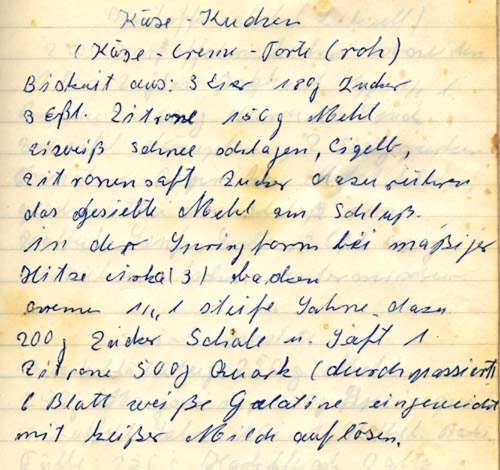 Käse-Kuchen
(Käse-Creme-Torte (roh)
Biskuit aus: 3 Eier 180g Zucker
3 Eßl. Zitrone 150g Mehl
Eiweiß Schnee schlagen, Eigelb,
Zitronensaft Zucker dazu rühren
das gesiebte Mehl am Schluß.
in der Springform bei mäßiger
Hitze (3) backen
steife Sahne, dazu
200g Zucker Schale u. Saft 1
Zitrone 500g Quark (durchpassiert)
6 Blatt weiße Gelatine eingeweicht
mit heißer Milch auflösen.